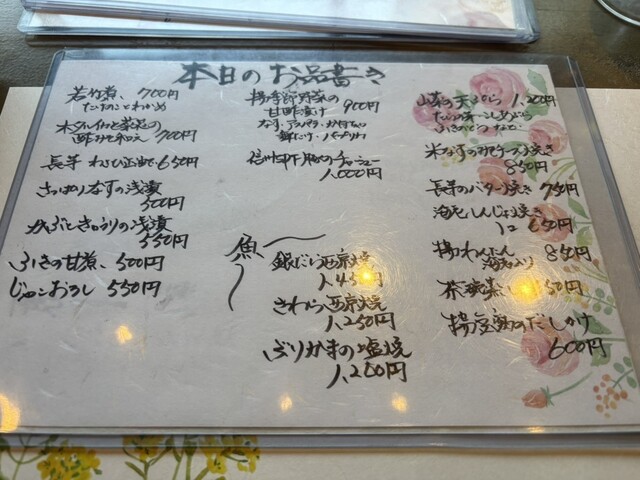 本日のお品書き
若竹煮、700円
たけのことわかめ
ホタルイカと菜花の
酢みそ和え 700円
長芋わさび正油で 650円
さっぱりなすの浅漬
500円
かぶときゅうりの浅漬
550円
ふきの甘煮、500円
じゃこおろし 550円
揚季節野菜の
甘酢漬け 900円
なす・アスパラ・かぼちゃ
信州 豚のチャーシュー
1,000円
魚
銀だら西京焼
1,450円
さわら西京焼
1,250円
ぶりかまの塩焼
1,200円
山菜の天ぷら 1,200円
たらの芽・こしあぶら
ふきのとうなど
米なすのみそチーズ焼き
850円
長芋のバター焼き 750円
海老しんじょ焼き
650円
揚わんたん 850円
海老入り
茶碗蒸し 50円
揚豆腐のだしかけ
600円